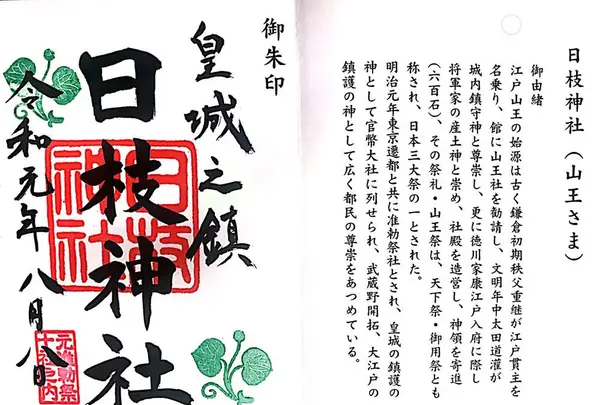 日枝神社（山王さま）
御由緒
江戸山王の始源は古く鎌倉初期秩父重継が江戸貫主を
名乗り、館に山王社を勧請し、文明年中太田道灌が
城内鎮守神と尊崇し、更に徳川家康江戸入府に際し
将軍家の産土神と崇め、社殿を造営し、神領を寄進
（六百石）、その祭礼・山王祭は、天下祭・御用祭とも
称され、日本三大祭の一とされた。
明治元年東京遷都と共に准勅祭社とされ、皇城の鎮護の
神として官幣大社に列せられ、武蔵野開拓、大江戸の
鎮護の神として広く都民の尊崇をあつめている。
御朱印
皇城之鎮
日枝神社
日枝
神社
令和元年八月八日
元准勅祭
十社之内